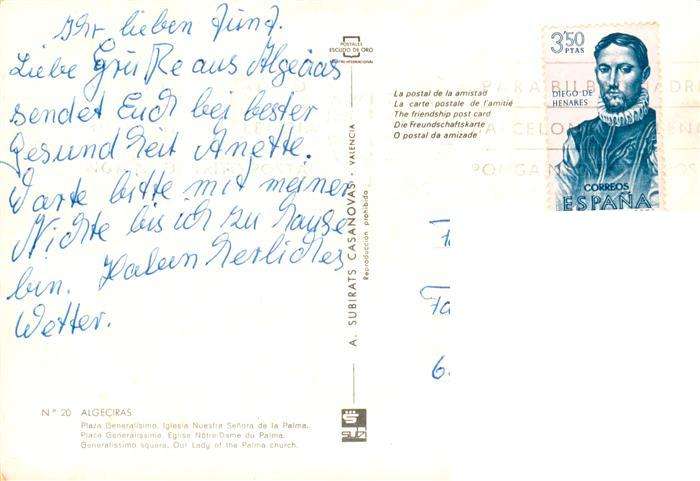 Ihr lieben Fünf.
Liebe Grüße aus Algeciras
sendet Euch bei bester
Gesundheit Anette.
Warte bitte mit meiner
Nichte bis ich zu Hause
bin. Haben herrliches
Wetter.
Nº 20 ALGECIRAS
Plaza Generalísimo. Iglesia Nuestra Señora de la Palma.
Place Generalissimo. Eglise Nôtre-Dame du Palma.
Generalissimo square. Our Lady of the Palma church.
POSTALES
ESCUDO DE ORO
A. SUBIRATS CASANOVAS - VALENCIA
Reproducción prohibida
La postal de la amistad
La carte postale de l'amitié
The friendship post card
Die Freundschaftskarte
O postal da amizade
3'50
PTAS
DIEGO DE
HENARES
CORREOS
ESPAÑA
6.